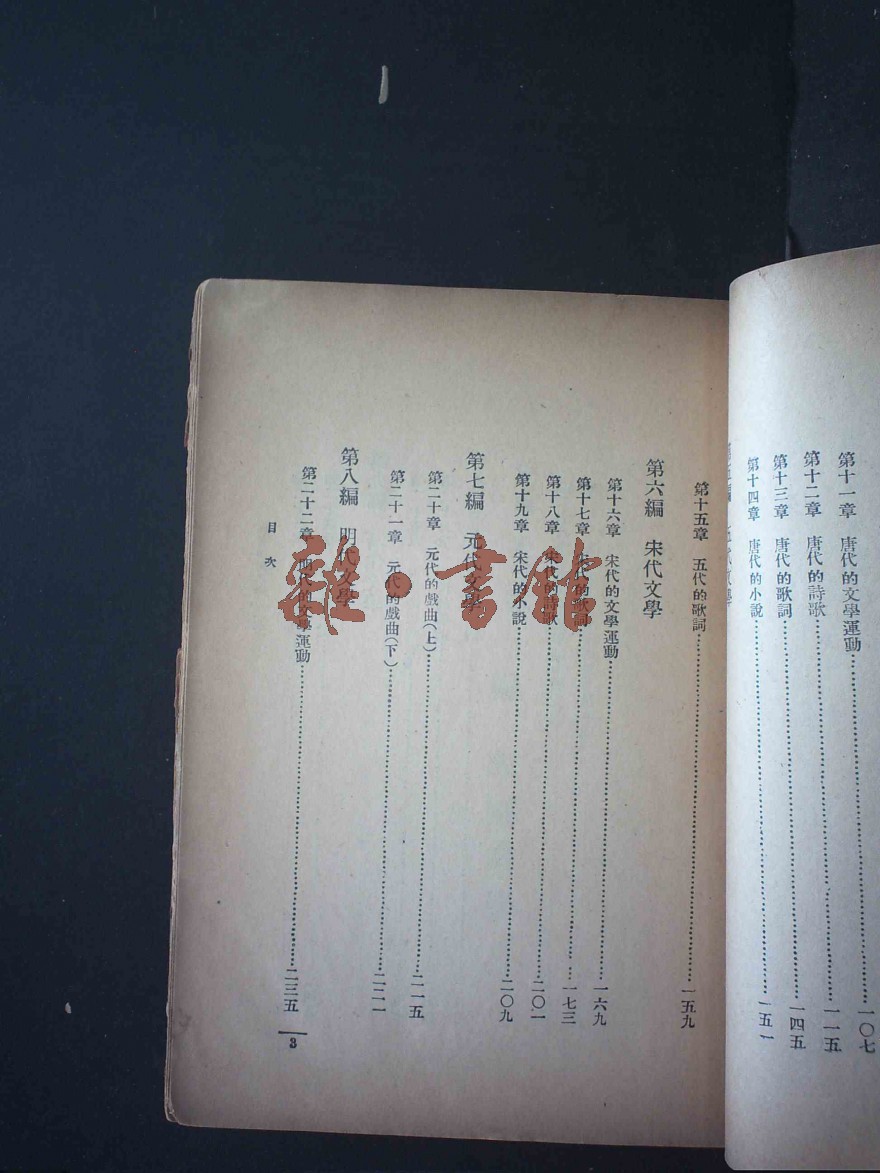 第十一章 唐代的文學運動……一〇七
第十二章 唐代的詩歌……一一五
第十三章 唐代的歌詞……一四五
第十四章 唐代的小說……一五一
第十五章 五代的歌詞……一五九
第六編 宋代文學
第十六章 宋代的文學運動……一六九
第十七章 宋代的歌詞……一七三
第十八章 宋代的詩歌……二〇一
第十九章 宋代的小說……二〇九
第七編 元代文學
第二十章 元代的戲曲(上)……二一五
第二十一章 元代的戲曲(下)……二二一
第八編 明代文學
第二十二章 明代的文學運動……二三五
目次
3
雜·書館